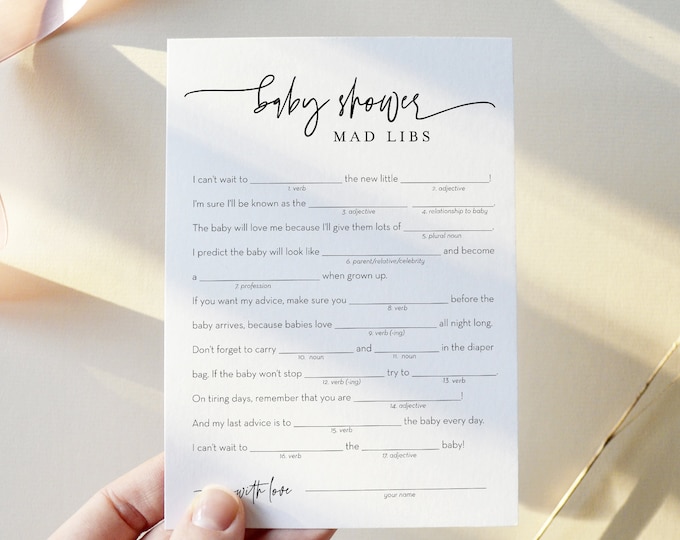 baby shower
MAD LIBS
I can't wait to ____ the new little ____!
1. verb 2. adjective
I'm sure I'll be known as the ____ ____.
3. adjective 4. relationship to baby
The baby will love me because I'll give them lots of ____.
5. plural noun
I predict the baby will look like ____ and become
6. parent/relative/celebrity
a ____ when grown up.
7. profession
If you want my advice, make sure you ____ before the
8. verb
baby arrives, because babies love ____ all night long.
9. verb (-ing)
Don't forget to carry ____ and ____ in the diaper
10. noun 11. noun
bag. If the baby won't stop ____ try to ____.
12. verb (-ing) 13. verb
On tiring days, remember that you are ____!
14. adjective
And my last advice is to ____ the baby every day.
15. verb
I can't wait to ____ the ____ baby!
16. verb 17. adjective
with love ____
your name